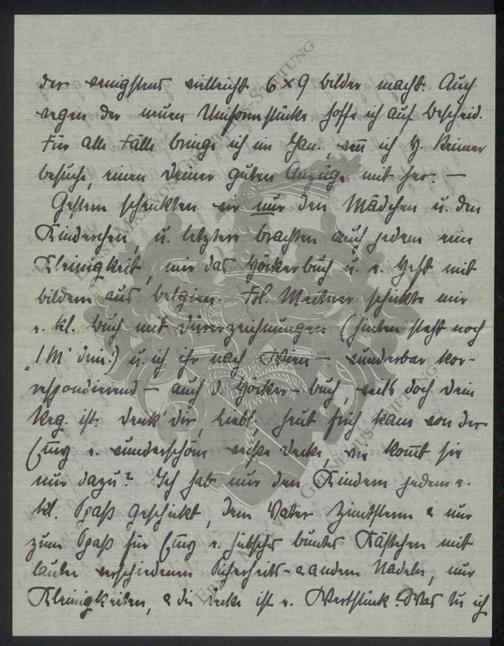 der wenigstens vielleicht 6x9 bilder macht. Auch
wegen der neuen Uniformstücke hoffe ich auf bescheid.
Für alle Fälle bringe ich im Jan., wenn ich H. Reimer
besuche, einen Deiner guten Anzüge mit her. —
Gestern schenkten wir nur den Mädchen u. den
Kinderchen, u. letztere brachten auch jedem eine
Kleinigkeit, mir das Yorckerbuch u. e. Heft mit
bildern aus belgien. Frl. Meitner schickte mir
e. kl. buch mit Dürerzeichnungen (hinten steht noch
"1 M" drin!) u. ich ihr nach Wien — wunderbar kor-
respondierend — auch d. Yorcker-buch, weils doch Dein
Reg. ist. Denk dir, liebl. heut früh kam von der
e. wunderschön weiße decke, wie kommt sie
nur dazu? Ich hab nur den Kindern jedem e.
kl. Spaß geschickt, dem Vater Zimtsterne & nur
zum Spaß für e. hübsches buntes Kästchen mit
lauter verschiedenen Sicherheits- & andern Nadeln, nur
Kleinigkeiten, & die decke ist e. Wertstück! Was tu ich